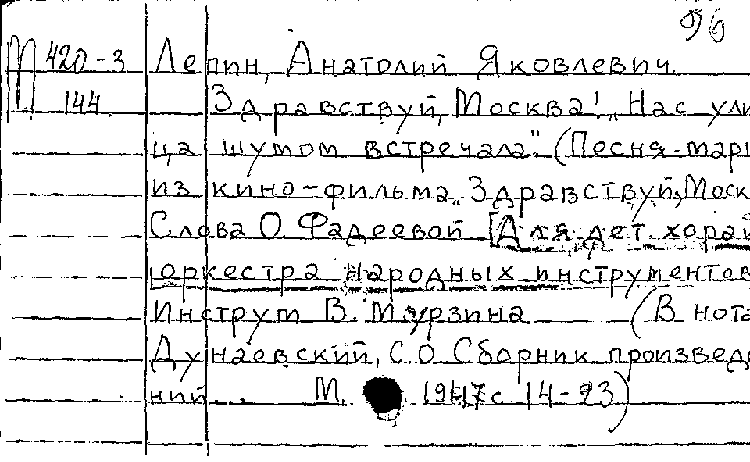 96
М 420-3 Лепин, Анатолий Яковлевич.
144 Здравствуй, Москва! „Нас ули
ца шумом встречала". (Песня-марш
из кино-фильма „Здравствуй, Моск
Слова О Фадеевой [Для дет. хора и
оркестра народных инструментов
Инструм В. Мурзина (В нота
Дунаевский, С. О. Сборник произведе
ний.. М. 1947 с 14-23)